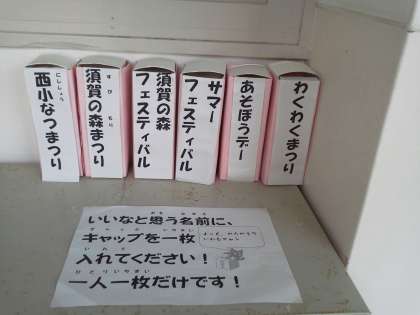 西小なつまつり
にししょう
須賀の森まつり
すが もり
須賀の森
フェスティバル
サマー
フェスティバル
あそぼうデー
わくわくまつり
いいなと思う名前に、
キャップを一枚
入れてください!
一人一枚だけです!